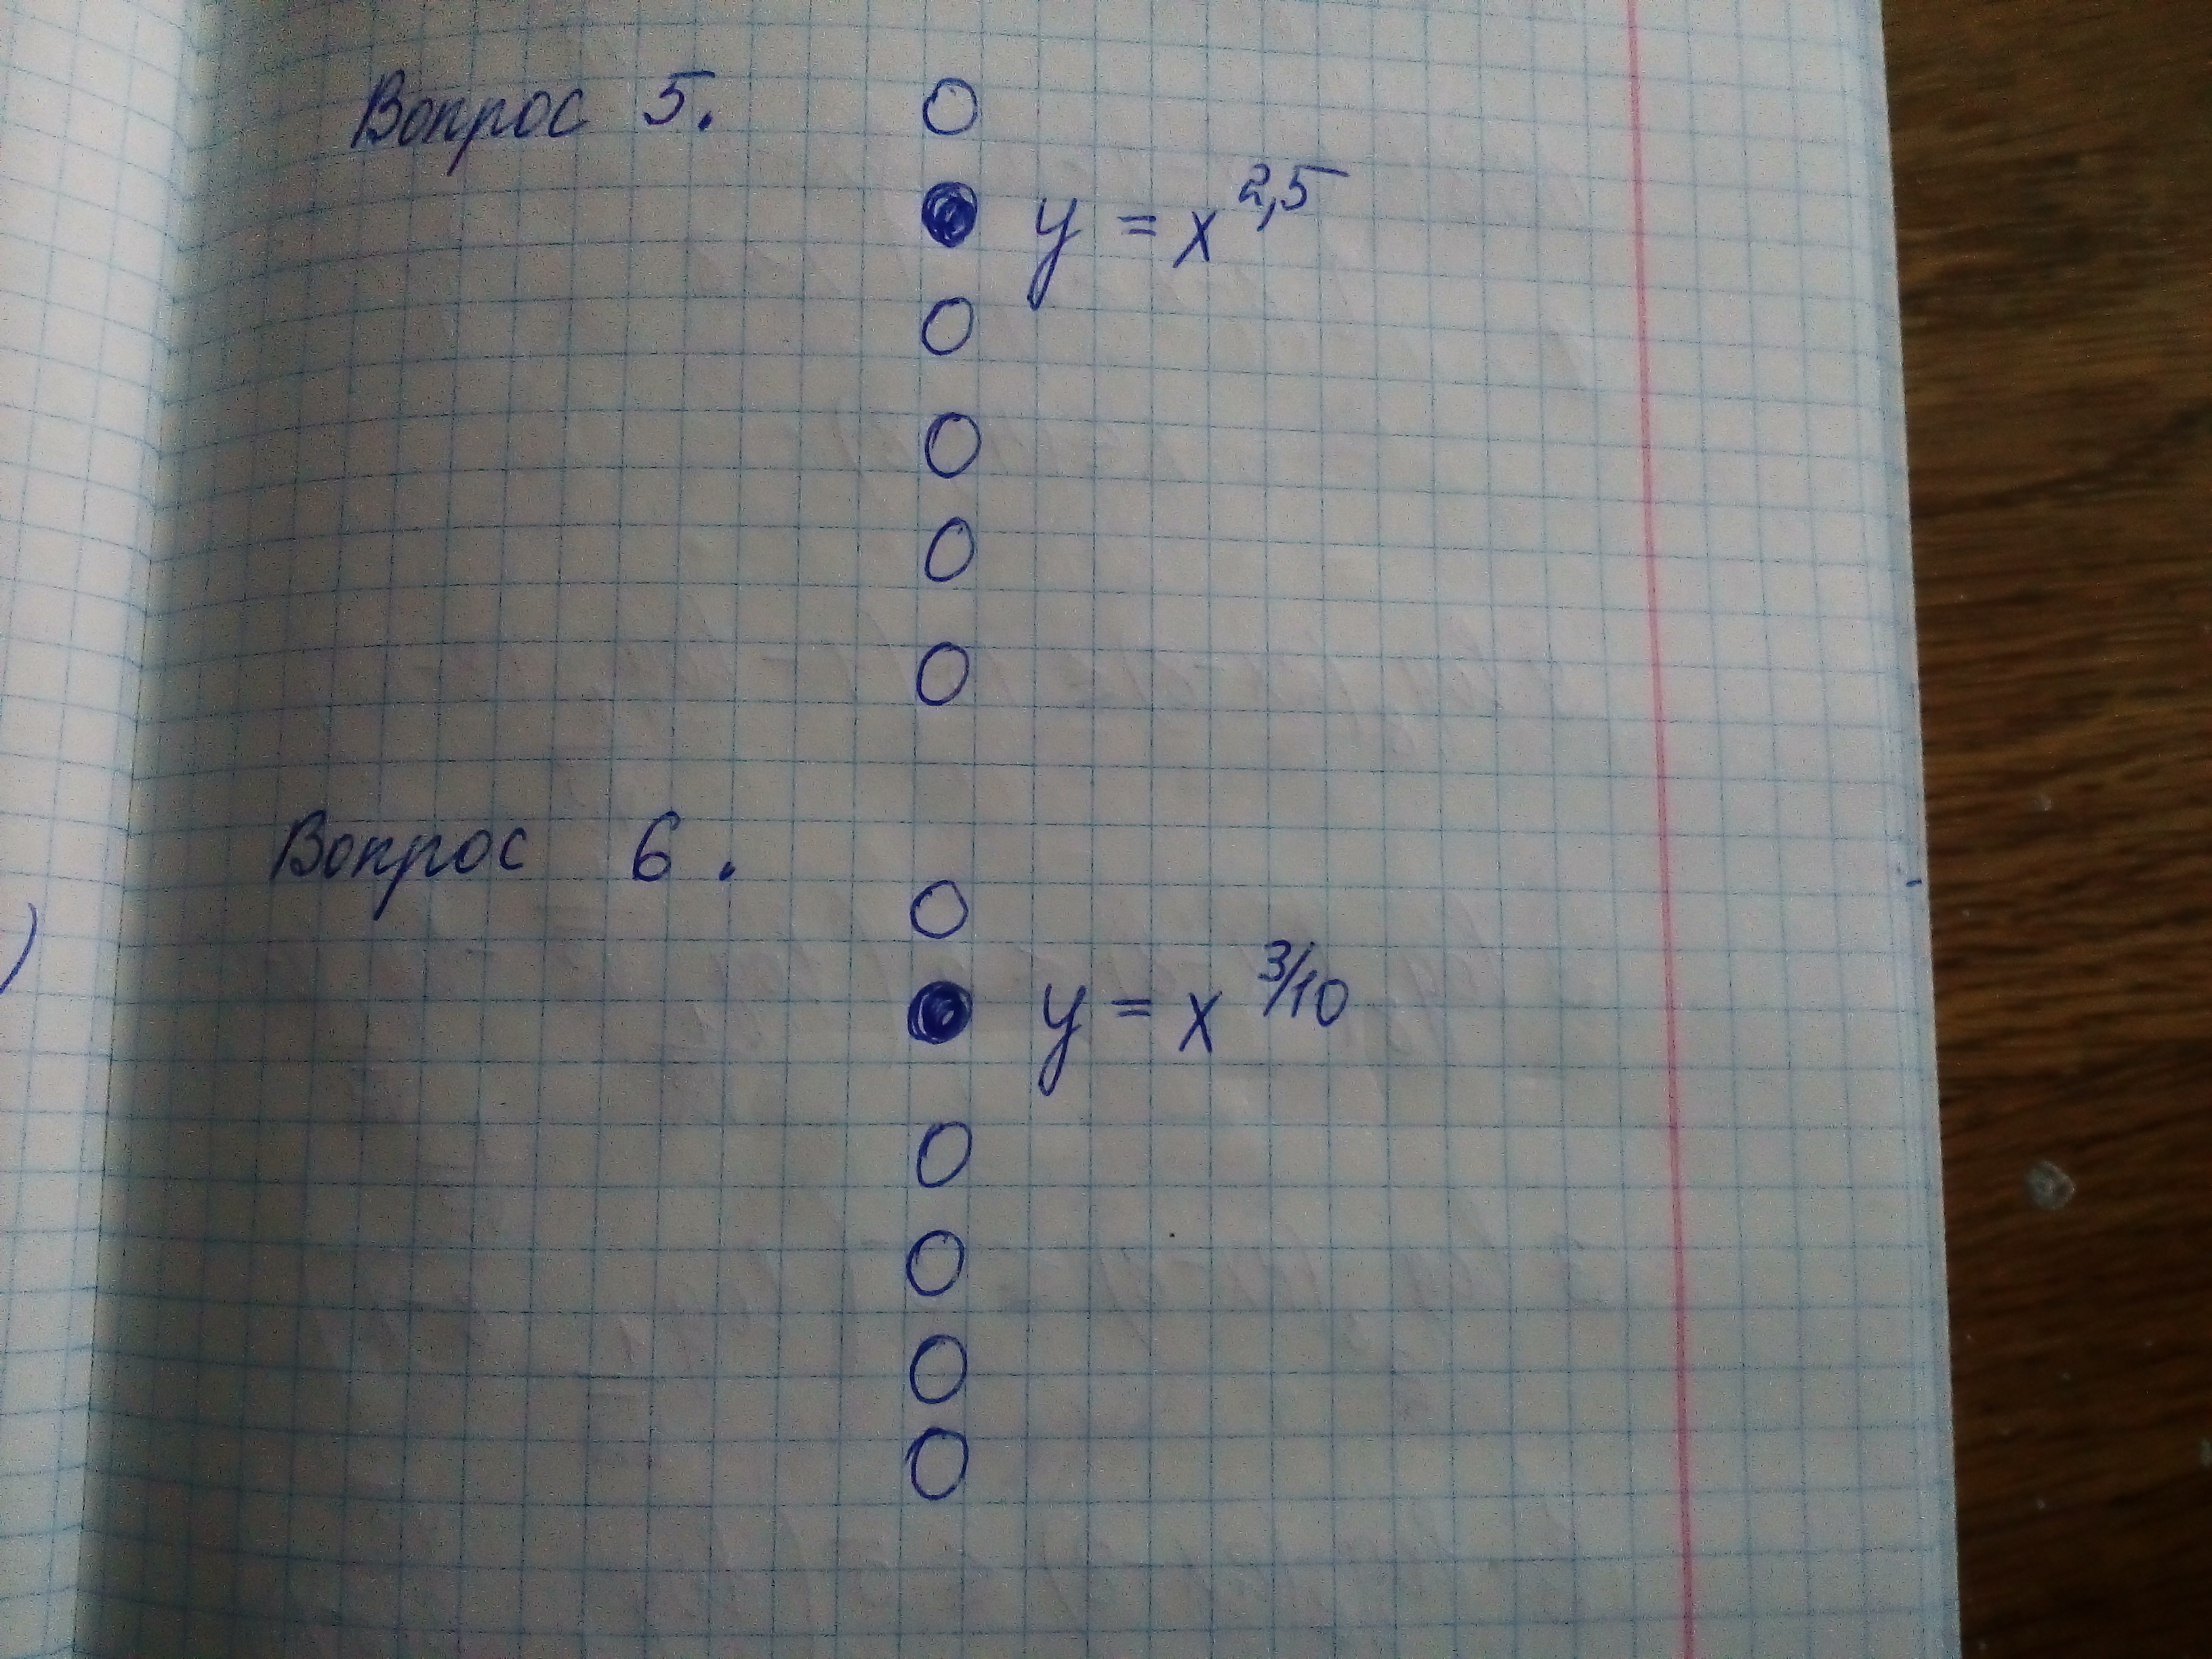 Вопрос 5.
y = x^2,5
Вопрос 6.
y = x^3/10